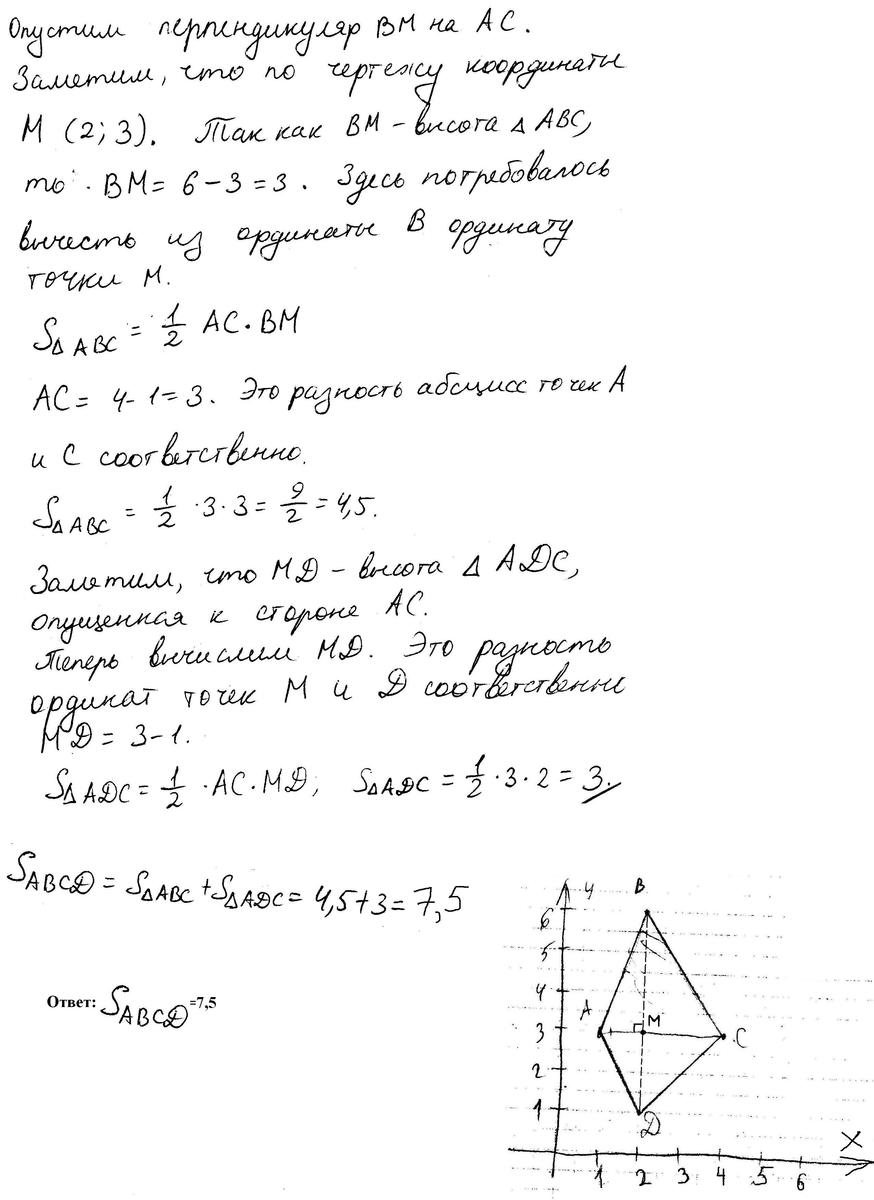 Опустим перпендикуляр BM на AC.
Заметим, что по чертежу координаты
M (2; 3). Так как BM – высота Δ ABC,
то BM = 6 – 3 = 3. Здесь потребовалось
вычесть из ординаты B ординату
точки M.
S_{Δ ABC} = 1/2 AC · BM
AC = 4 - 1 = 3. Это разность абсцисс точек A
и C соответственно.
S_{Δ ABC} = 1/2 · 3 · 3 = 9/2 = 4,5.
Заметим, что MD – высота Δ ADC,
опущенная к стороне AC.
Теперь вычислим MD. Это разность
ординат точек M и D соответственно
MD = 3 – 1.
S_{Δ ADC} = 1/2 · AC · MD; S_{Δ ADC} = 1/2 · 3 · 2 = 3.
S_{ABCD} = S_{ΔABC} + S_{ΔADC} = 4,5 + 3 = 7,5
Ответ: S_{ABCD} =7,5
y B
6
5
4
A M
3 C
2
1
D
X
1 2 3 4 5 6